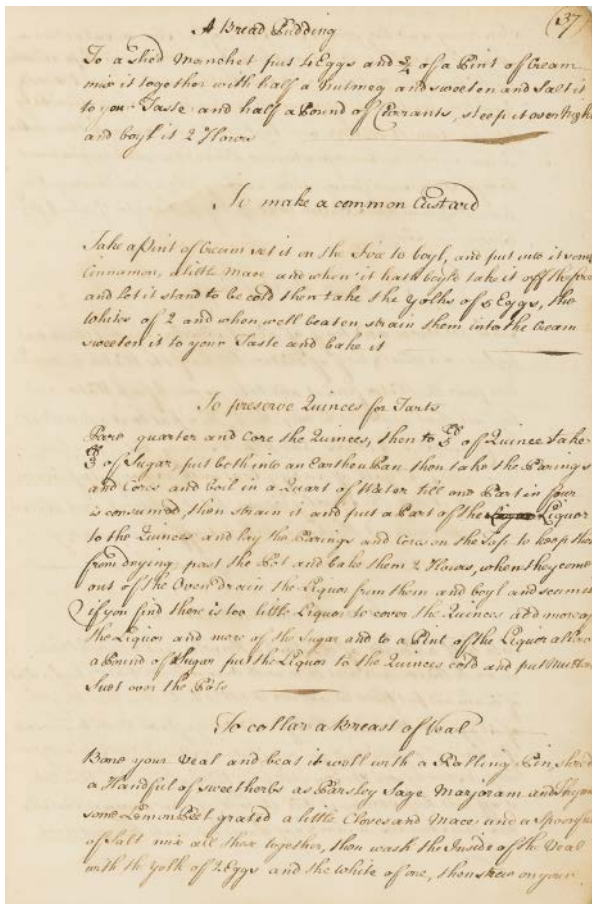 (37)
A Bread Pudding
To a slic'd Manchet put 4 Eggs and ¾ of a Pint of Cream
mix it together with half a Nutmeg and sweeten and Salt it
to your Taste and half a Pound of Currants, steep it over Night
and boyl it 2 Hours
To make a common Custard
Take a Pint of Cream set it on the Fire to boyl, and put into it some
Cinnamon, a little Mace and when it hath boyl'd take it off the fire
and let it stand to be cold then take the yolks of 5 Eggs, the
whites of 2 and when well beaten, strain them into the Cream
sweeten it to your Taste and bake it
To preserve Quinces for Tarts
Pare quarter and Core the Quinces, then to of Quince take
of Sugar, put both into an Earthen Pan then take the Parings
and Cores and boil in a Quart of Water till one Part in four
is consumed, then strain it and put a Part of the Liquor
to the Quinces and lay the Parings and Cores on the Top to keep them
from drying, past the Pot and bake them 2 Hours, when they come
out of the Oven drain the Liquor from them and boyl and scum it
if you find there is too little Liquor to cover the Quinces add more of
the Liquor and more of the Sugar and to a Pint of the Liquor allow
a Pound of Sugar put the Liquor to the Quinces cold and put Mutton
Suet over the Pots
To collar a Breast of Veal
Bone your Veal and beat it well with a Rolling Pin shred
a Handful of sweet herbs as Parsley Sage Marjoram and Thyme
some Lemon Peel grated a little Cloves and Mace and a Spoonful
of Salt mix all these together, then wash the Inside of the Veal
with the yolk of 2 Eggs and the White of one, then strew on your